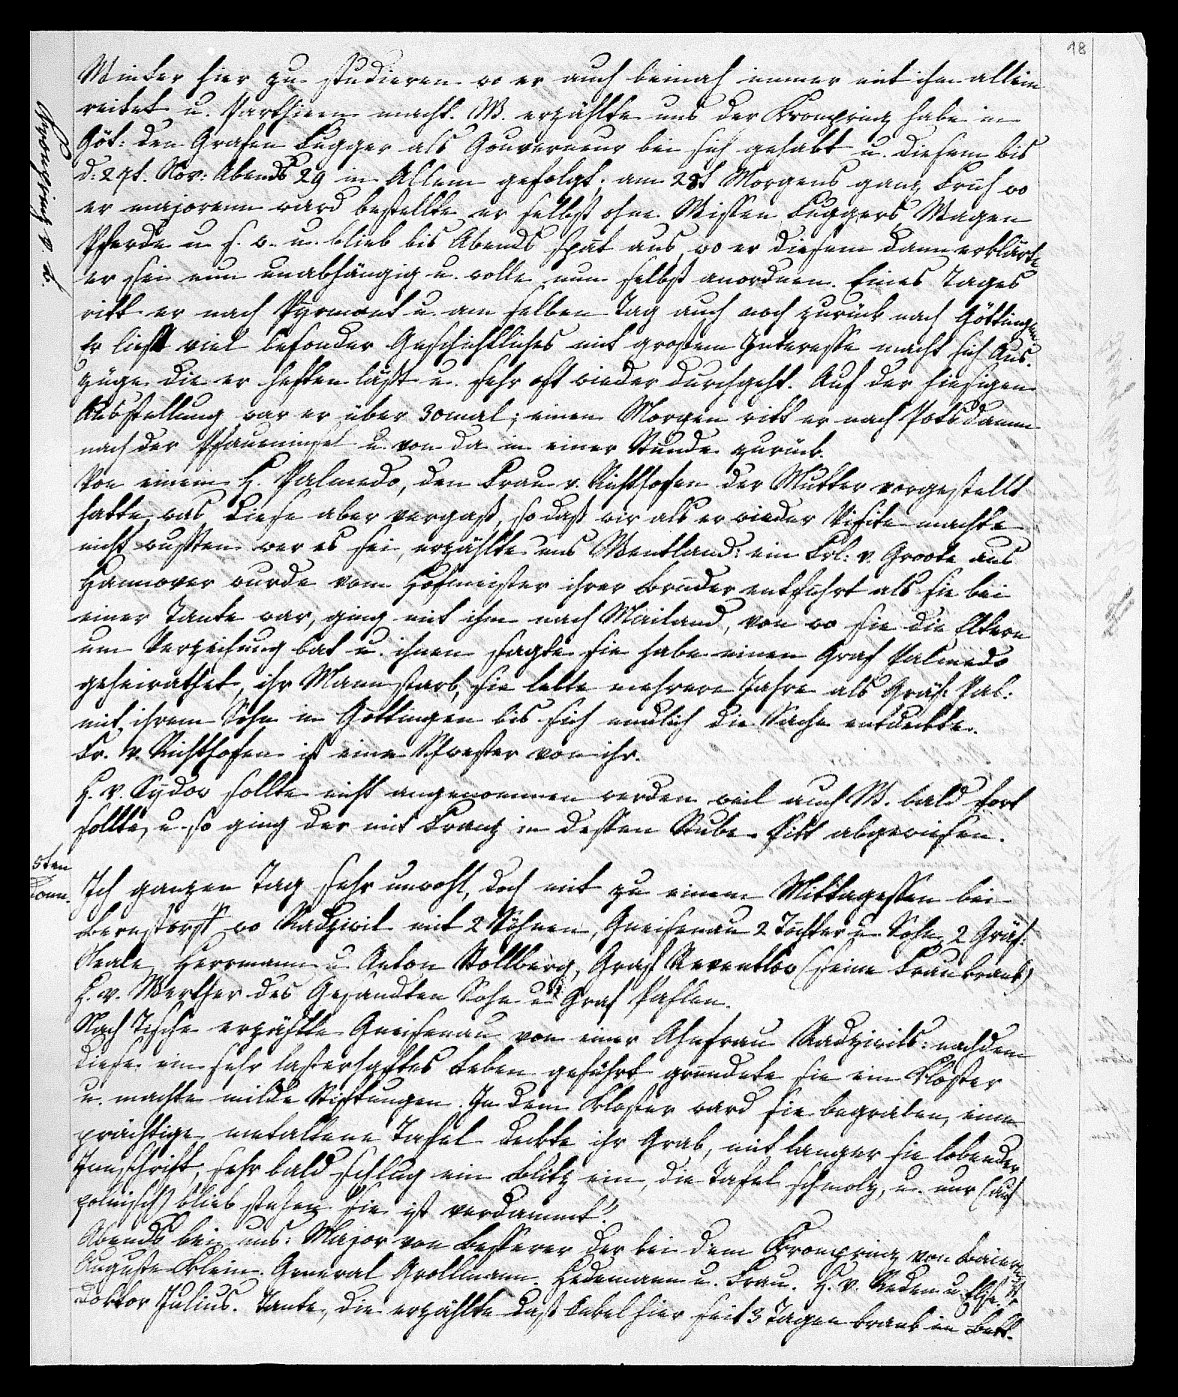 18
Winter hier zu studieren wo er auch beinah immer mit ihm allein
reitet u. Parthieen macht. W. erzählte uns der Kronprinz habe in
Göt: den Grafen Fugger als Gouverneur bei sich gehabt u. diesem bis
d. 27t. Nov: Abends in Allem gefolgt; am 28t Morgens ganz früh wo
er majorenn ward bestellte er selbst ohne Wissen Fuggers Wagen
Pferde u. s. w. u. blieb bis Abends spät aus, wo er diesem dann erklärte
er sei nun unabhängig u. wolle nun selbst anordnen. Eines Tages
ritt er nach Pyrmont u. am selben Tag auch noch zurück nach Göttingen.
Er liest viel besonder Geschichtliches mit großem Interesse macht sich Aus-
züge die er heften läßt u. sehr oft wieder durchgeht. Auf der hiesigen
Ausstellung war er über 30mal; einen Morgen ritt er nach Potsdamm
nach der Pfaueninsel u. von da in einer Stunde zurück.
Von einem H. Palmedo, den Frau v. Richthofen der Mutter vorgestellt
hatte, was diese aber vergaß, so daß wir als er wieder Visite machte
nicht wußten wer es sei, erzählte uns Wentland: ein Frl: v. Groote aus
Hannover wurde vom Hofmeister ihrer Brüder entführt als sie bei
einer Tante war, ging mit ihm nach Mailand, von wo sie die Eltern
um Verzeihung bat u. ihnen sagte sie habe einen Graf Palmedo
geheirathet, ihr Mann starb, sie lebte mehrere Jahre als Gräf: Pal:
mit ihrem Sohn in Göttingen bis sich endlich die Sache entdeckte.
Fr. v. Richthofen ist eine Schwester von ihr.
H. v. Sydow sollte nicht angenommen werden weil auch W. bald fort
sollte, u. so ging der mit Franz in dessen Stube. Pitt abgewiesen.
5ten
Donn.
Ich ganzen Tag sehr unwohl, doch mit zu einem Mittagessen bei
Bernstorff wo Radziwil mit 2 Söhnen, Gneisenau 2 Töchter u. Sohn, 2 Gräf:
Neale, Herrmann u. Anton Stollberg, Graf Reventlow (seine Frau krank)
H. v. Werther des Gesandten Sohn u. Graf Pahlen.
Nach Tische erzählte Gneisenau von einer Ahnfrau Radziwils: nachdem
diese ein sehr lasterhaftes Leben geführt gründete sie ein Kloster
u. machte milde Stiftungen. In dem Kloster ward sie begraben, eine
prächtige metallene Tafel deckte ihr Grab, mit langer sie lobender
Innschrift, sehr bald schlug ein Blitz ein, die Tafel schmolz, u. nur (auf
polnisch) blieb stehen "sie ist verdammt".
Abends bei uns: Major von Besserer der bei dem Kronprinz von Baiern ist
Auguste Klein. General Grollmann. Hedemann u. Frau. H. v. Reden u.
Doktor Julius. Tante, die erzählte daß hier seit 3 Tagen krank im Bett.
Kronprinz v. B.